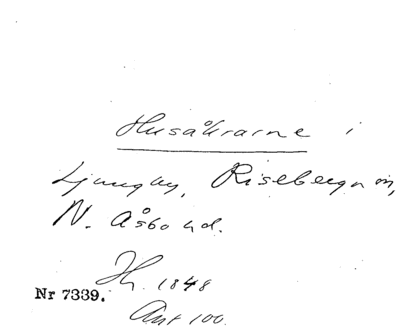 Husåkrarne i
Ljungby, Risebergа sn,
N. Åsbo hd.
Hr. 1848
Nr 7339.
Ant 100.